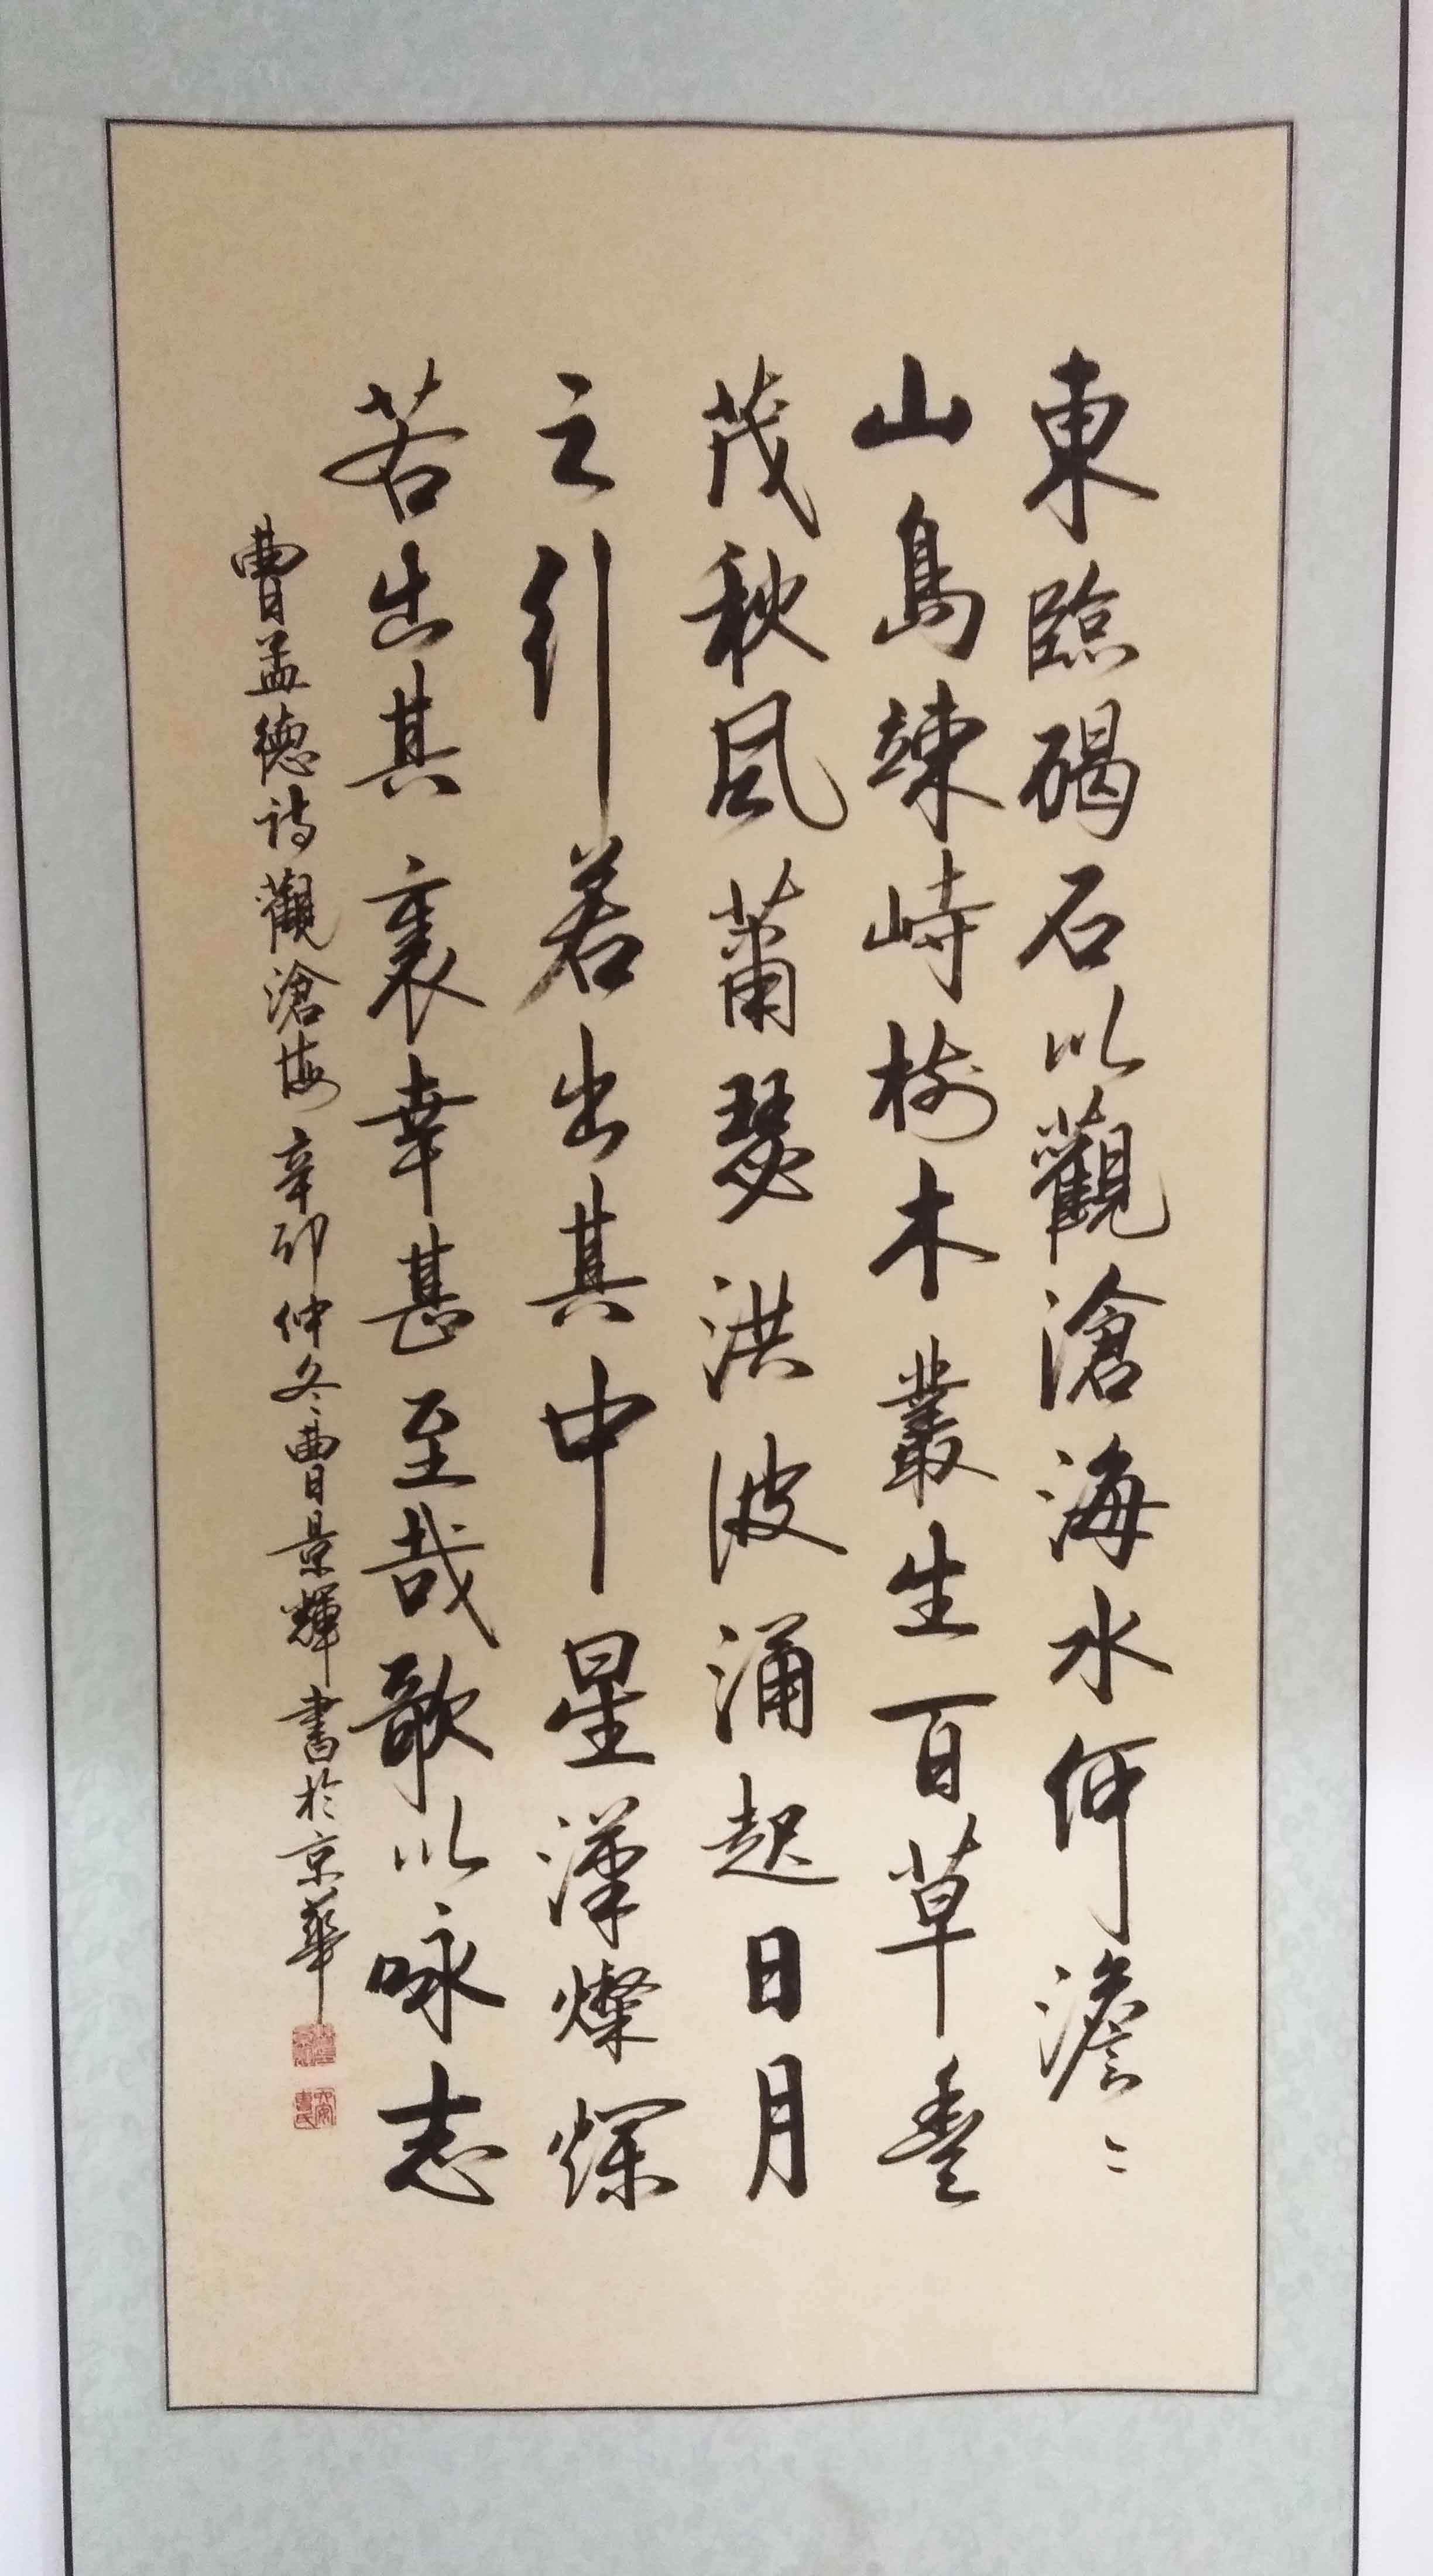 東臨碣石以觀滄海水何澹澹〻
山島竦峙樹木叢生百草豐
茂秋風蕭瑟洪波涌起日月
之行若出其中星漢燦爛
若出其裏幸甚至哉歌以咏志
曹孟德詩觀滄海辛卯仲冬曹景輝書於京華